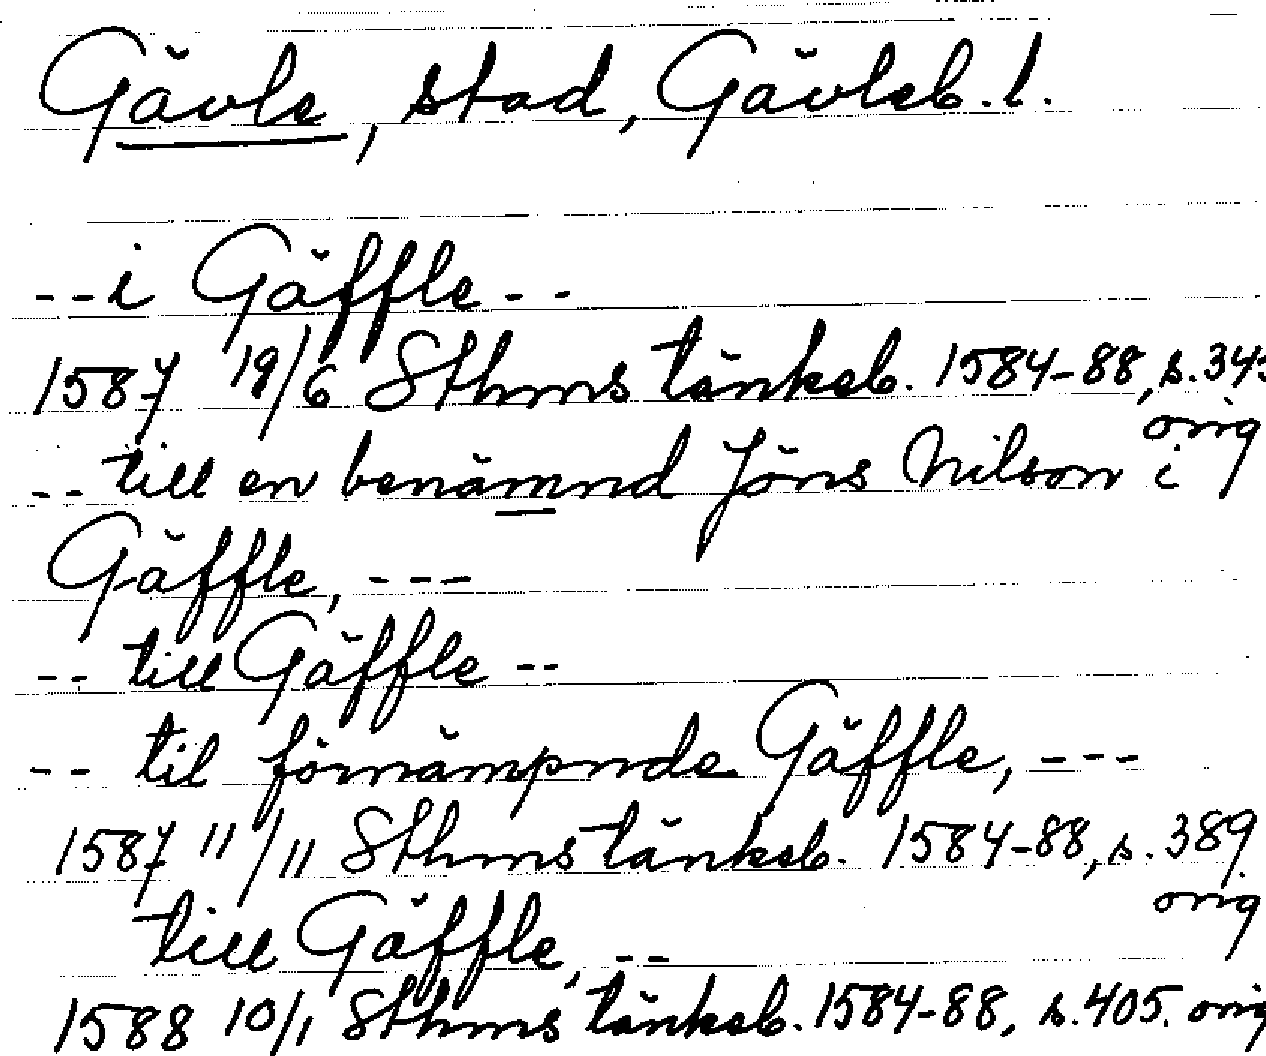 Gävle, stad, Gävleb. l.
-- i Gäffle --
1587 19/6 Sthms tänkeb. 1584-88, s. 343
orig
-- till en benämnd Jöns Nilson i
Gäffle, ---
-- till Gäffle --
-- til förnämpnde Gäffle, ---
1587 11/11 Sthms tänkeb. 1584-88, s. 389
orig
till Gäffle, --
1588 10/1 Sthms tänkeb. 1584-88, s. 405. orig